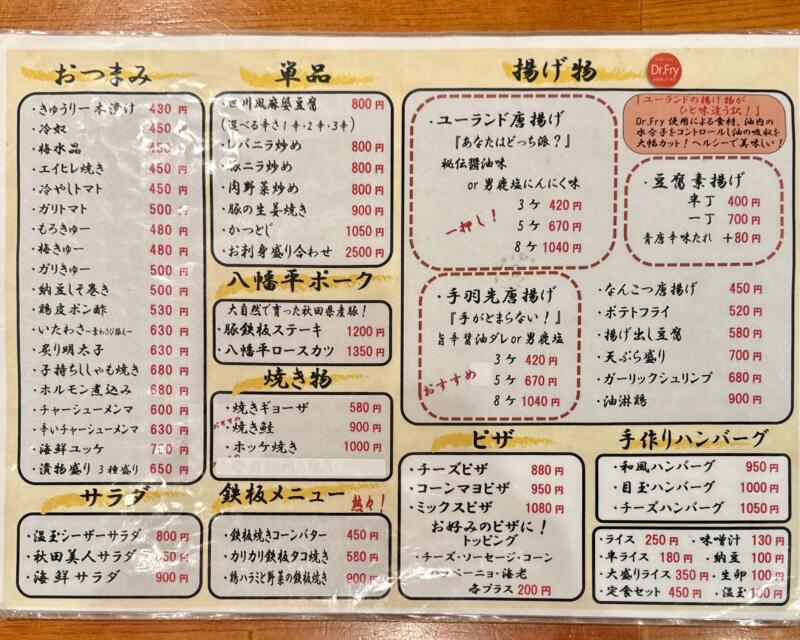 おつまみ
・きゅうり一本漬け 430円
・冷奴 450円
・梅水晶 450円
・エイヒレ焼き 450円
・冷やしトマト 450円
・ガリトマト 500円
・もろきゅー 480円
・梅きゅー 480円
・ガリきゅー 500円
・納豆しそ巻き 500円
・鶏皮ポン酢 530円
・いたわさ〜葉わさび添え〜 630円
・炙り明太子 630円
・子持ちししゃも焼き 680円
・ホルモン煮込み 680円
・チャーシューメンマ 600円
・辛いチャーシューメンマ 630円
・海鮮ユッケ 円
・漬物盛り 3種盛り 650円
サラダ
・温玉シーザーサラダ 800円
・秋田美人サラダ 50円
・海鮮サラダ 900円
単品
・四川風麻婆豆腐 800円
(選べる辛さ1辛・2辛・3辛)
・レバニラ炒め 800円
・豚ニラ炒め 800円
・肉野菜炒め 800円
・豚の生姜焼き 900円
・かつとじ 1050円
・お刺身盛り合わせ 2500円
八幡平ポーク
大自然で育った秋田県産豚!
・豚鉄板ステーキ 1200円
・八幡平ロースカツ 1350円
焼き物
・焼きギョーザ 580円
おすすめ
・焼き鮭 900円
・ホッケ焼き 1000円
鉄板メニュー 熱々!
・鉄板焼きコーンバター 450円
・カリカリ鉄板タコ焼き 580円
・鶏ハラミと野菜の鉄板焼き 900円
揚げ物
Dr.Fry
『ユーランドの揚げ物が
ひと味違う訳!』
Dr.Fry使用による食材、油内の
水分子をコントロールし油の吸収を
大幅カット!ヘルシーで美味しい!
・ユーランド唐揚げ
『あなたはどっち派?』
秘伝醤油味
or 男鹿塩にんにく味
一押し!
3ケ 420円
5ケ 670円
8ケ 1040円
・豆腐素揚げ
半丁 400円
一丁 700円
青唐辛味たれ +80円
・手羽先唐揚げ
『手がとまらない!』
旨辛醤油ダレor男鹿塩
おすすめ
3ケ 420円
5ケ 670円
8ケ 1040円
・なんこつ唐揚げ 450円
・ポテトフライ 520円
・揚げ出し豆腐 580円
・天ぷら盛り 700円
・ガーリックシュリンプ 680円
・油淋鶏 900円
ピザ
・チーズピザ 880円
・コーンマヨピザ 950円
・ミックスピザ 1080円
お好みのピザに!
トッピング
・チーズ・ソーセージ・コーン
ハラペーニョ・海老
各プラス200円
手作りハンバーグ
・和風ハンバーグ 950円
・目玉ハンバーグ 1000円
・チーズハンバーグ 1050円
・ライス 250円 ・味噌汁 130円
・半ライス 180円 ・納豆 100円
・大盛りライス 350円 ・生卵 100円
・定食セット 450円 ・温玉 100円